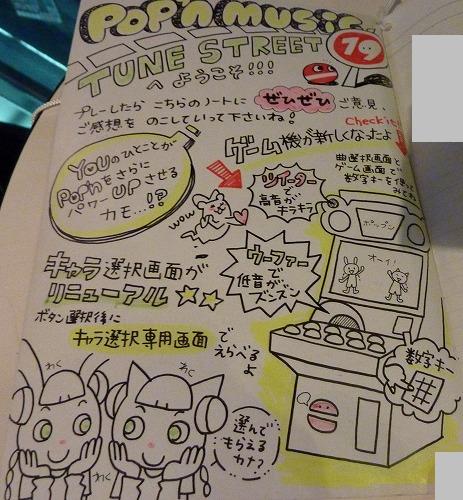 POP'N MUSIC
19
TUNE STREET
へようこそ!!!
プレーしたら こちらのノートに ぜひぜひ ご意見、
ご感想を のこしていって下さいね!
Check it!
ゲーム機が新しくなったよ
YOUのひとことが
Pop'nをさらに
パワーUPさせる
カモ…!?
曲選択画面と
ゲーム画面で
数字キーを使って
みてね
ツイーター
で
高音が
キラキラ
WOW
ポップン
ウーファー
で
低音が
ズンズン
オーイ!
キャラ選択画面が
リニューアル
ボタン選択後に
キャラ選択専用画面 で
えらべる
よ
数字キー
わく
わく
わく
選んで
もらえる
カナ?